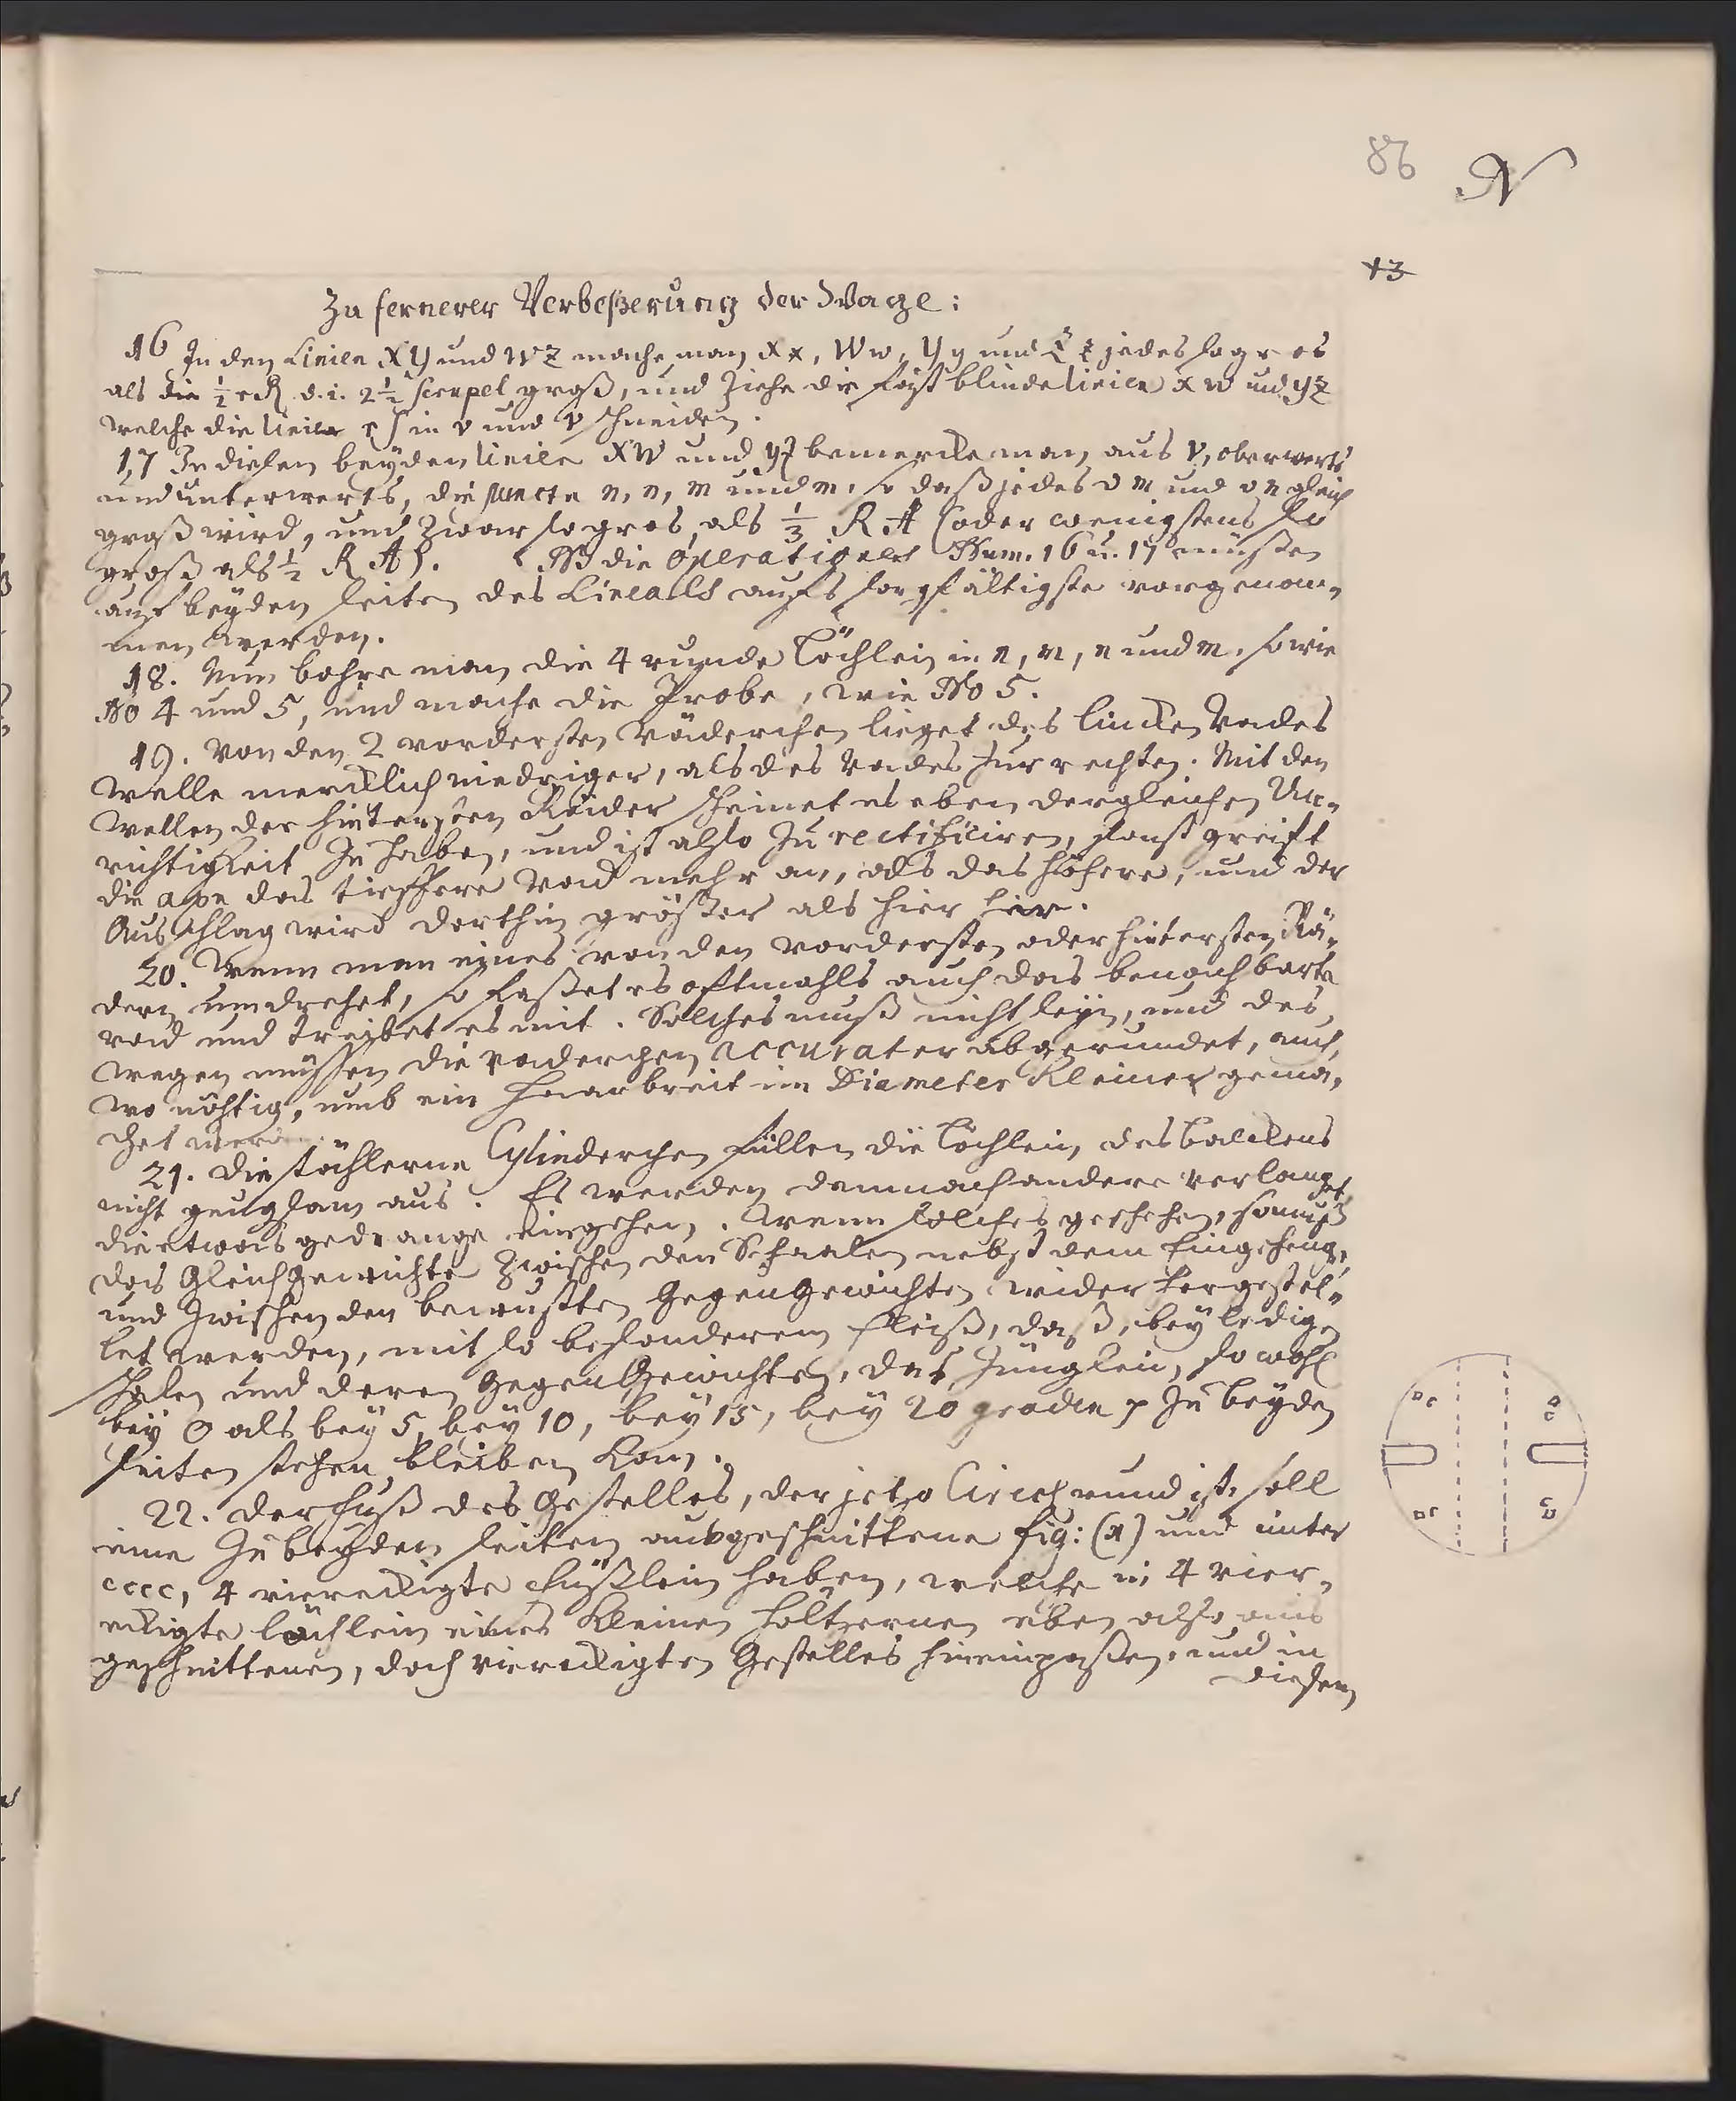 86 N
13
Zu fernerer Verbeßerung der Wage:
16 In den Linien XY und WZ mache man Xx, Ww, Yy und Zz jedes so gros
als die ½ d. i. 2½ scrupel groß, und ziehe die fast blinde linien xw und yz
welche die linien rs in v und v schneiden.
17 In diesen beyden linien xw und yz bemercke man aus v, oberwerts
und unterwerts, die puncta n, n, m und m, so daß jedes v m und v n gleich
groß wird, und zwar so gros, als 1/3 R A (oder wenigstens so
groß als ½ R A). NB die Operationes Num. 16 u. 17 müßen
auf beyden seiten des Lineals aufs sorgfältigste vorgenom-
men werden.
18. Nun bohre man die 4 runde Löchlein in n, m, n und m, so wie
No 4 und 5, und mache die Probe, wie No 5.
19. Von den 2 vordersten Räderchen lieget des lincken Rades
Welle mercklich niedriger, als des Rades zur rechten. Mit den
Wellen der hintersten Räder scheinet es eben dergleichen Un-
richtigkeit zu haben, und ist also zu rectificiren, sonst greift
die axe das tieffere Rad mehr an, als das höhere, und der
Ausschlag wird dorthin größer als hier her.
20. Wenn man eines von den vordersten oder hintersten Rä-
dern umdrehet, so faßet es oftmahls auch das benachbarte
rad und treibet es mit. Solches muß nicht seyn, und des,
wegen müssen die räderchen accurater abgerundet, auch,
wo nöhtig, umb ein Haarbreit im Diameter kleiner gema-
chet werden.
21. die stählerne Cylinderchen füllen die Löchlein, des Balckens
nicht gnugsam aus. Es werden demnach andere verlanget
die etwas gedrange eingehen. Wenn solches geschehen, so muß
das Gleichgewichte zwischen den Schaalen nebst dem Eingeheng,
und zwischen den bewußten Gegen Gewichten wider hergestel-
let werden, mit so besonderem fleiß, daß, bey ledigen
schalen und deren Gegen Gewichten, das Zünglein, so wohl
bey 0 als bey 5, bey 10, bey 15, bey 20 graden zu beyden
seiten stehen bleiben kan.
22. Der fuß des Gestelles, der jetzo Circelrund ist, soll
eine zu beyden seiten ausgeschnittene fig: (x) und unter
cccc, 4 viereckigte füßlein haben, welche in 4 vier-
eckigte löchlein eines kleinen holtzernen eben also aus
geschnittenen, doch viereckigten Gestelles hineinpaßen, und in
diesem
c
c
c
c